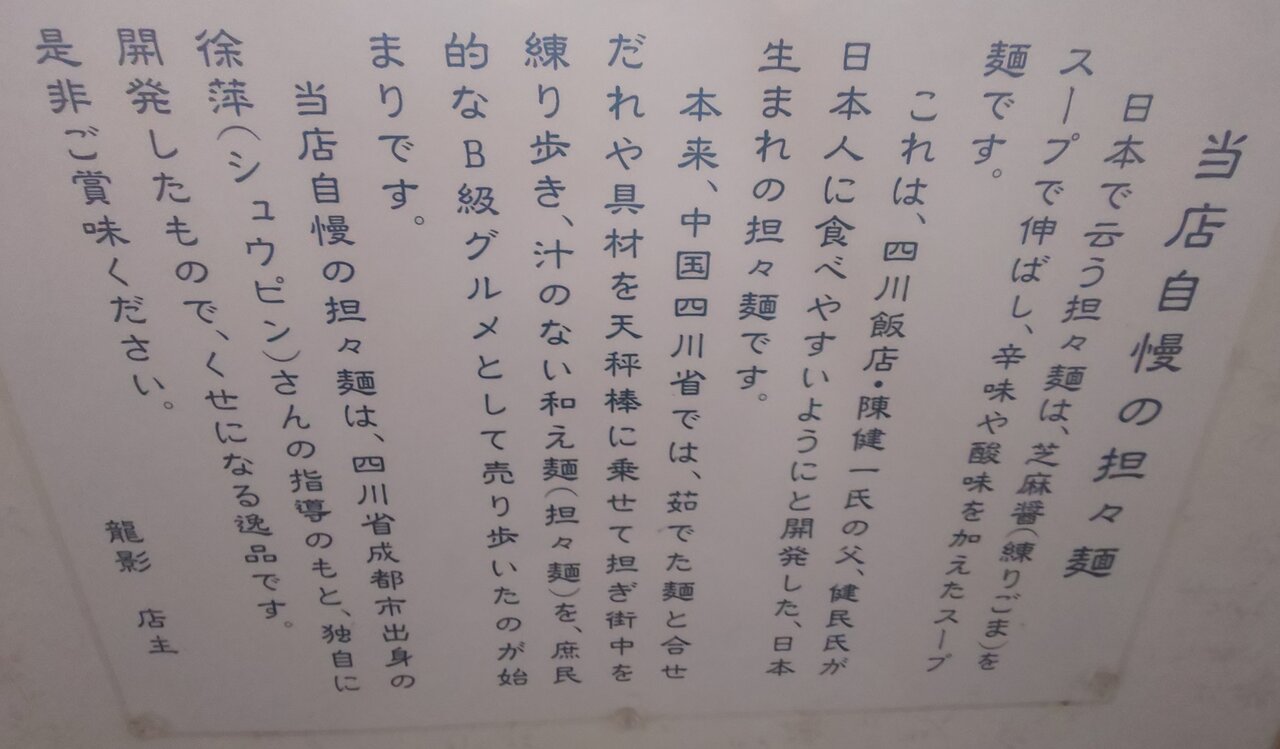 当店自慢の担々麺
日本で云う担々麺は、芝麻醤(練りごま)を
スープで伸ばし、辛味や酸味を加えたスープ
麺です。
これは、四川飯店・陳健一氏の父、健民氏が
日本人に食べやすいようにと開発した、日本
生まれの担々麺です。
本来、中国四川省では、茹でた麺と合せ
だれや具材を天秤棒に乗せて担ぎ街中を
練り歩き、汁のない和え麺(担々麺)を、庶民
的なB級グルメとして売り歩いたのが始
まりです。
当店自慢の担々麺は、四川省成都市出身の
徐萍(シュウピン)さんの指導のもと、独自に
開発したもので、くせになる逸品です。
是非ご賞味ください。
龍影 店主